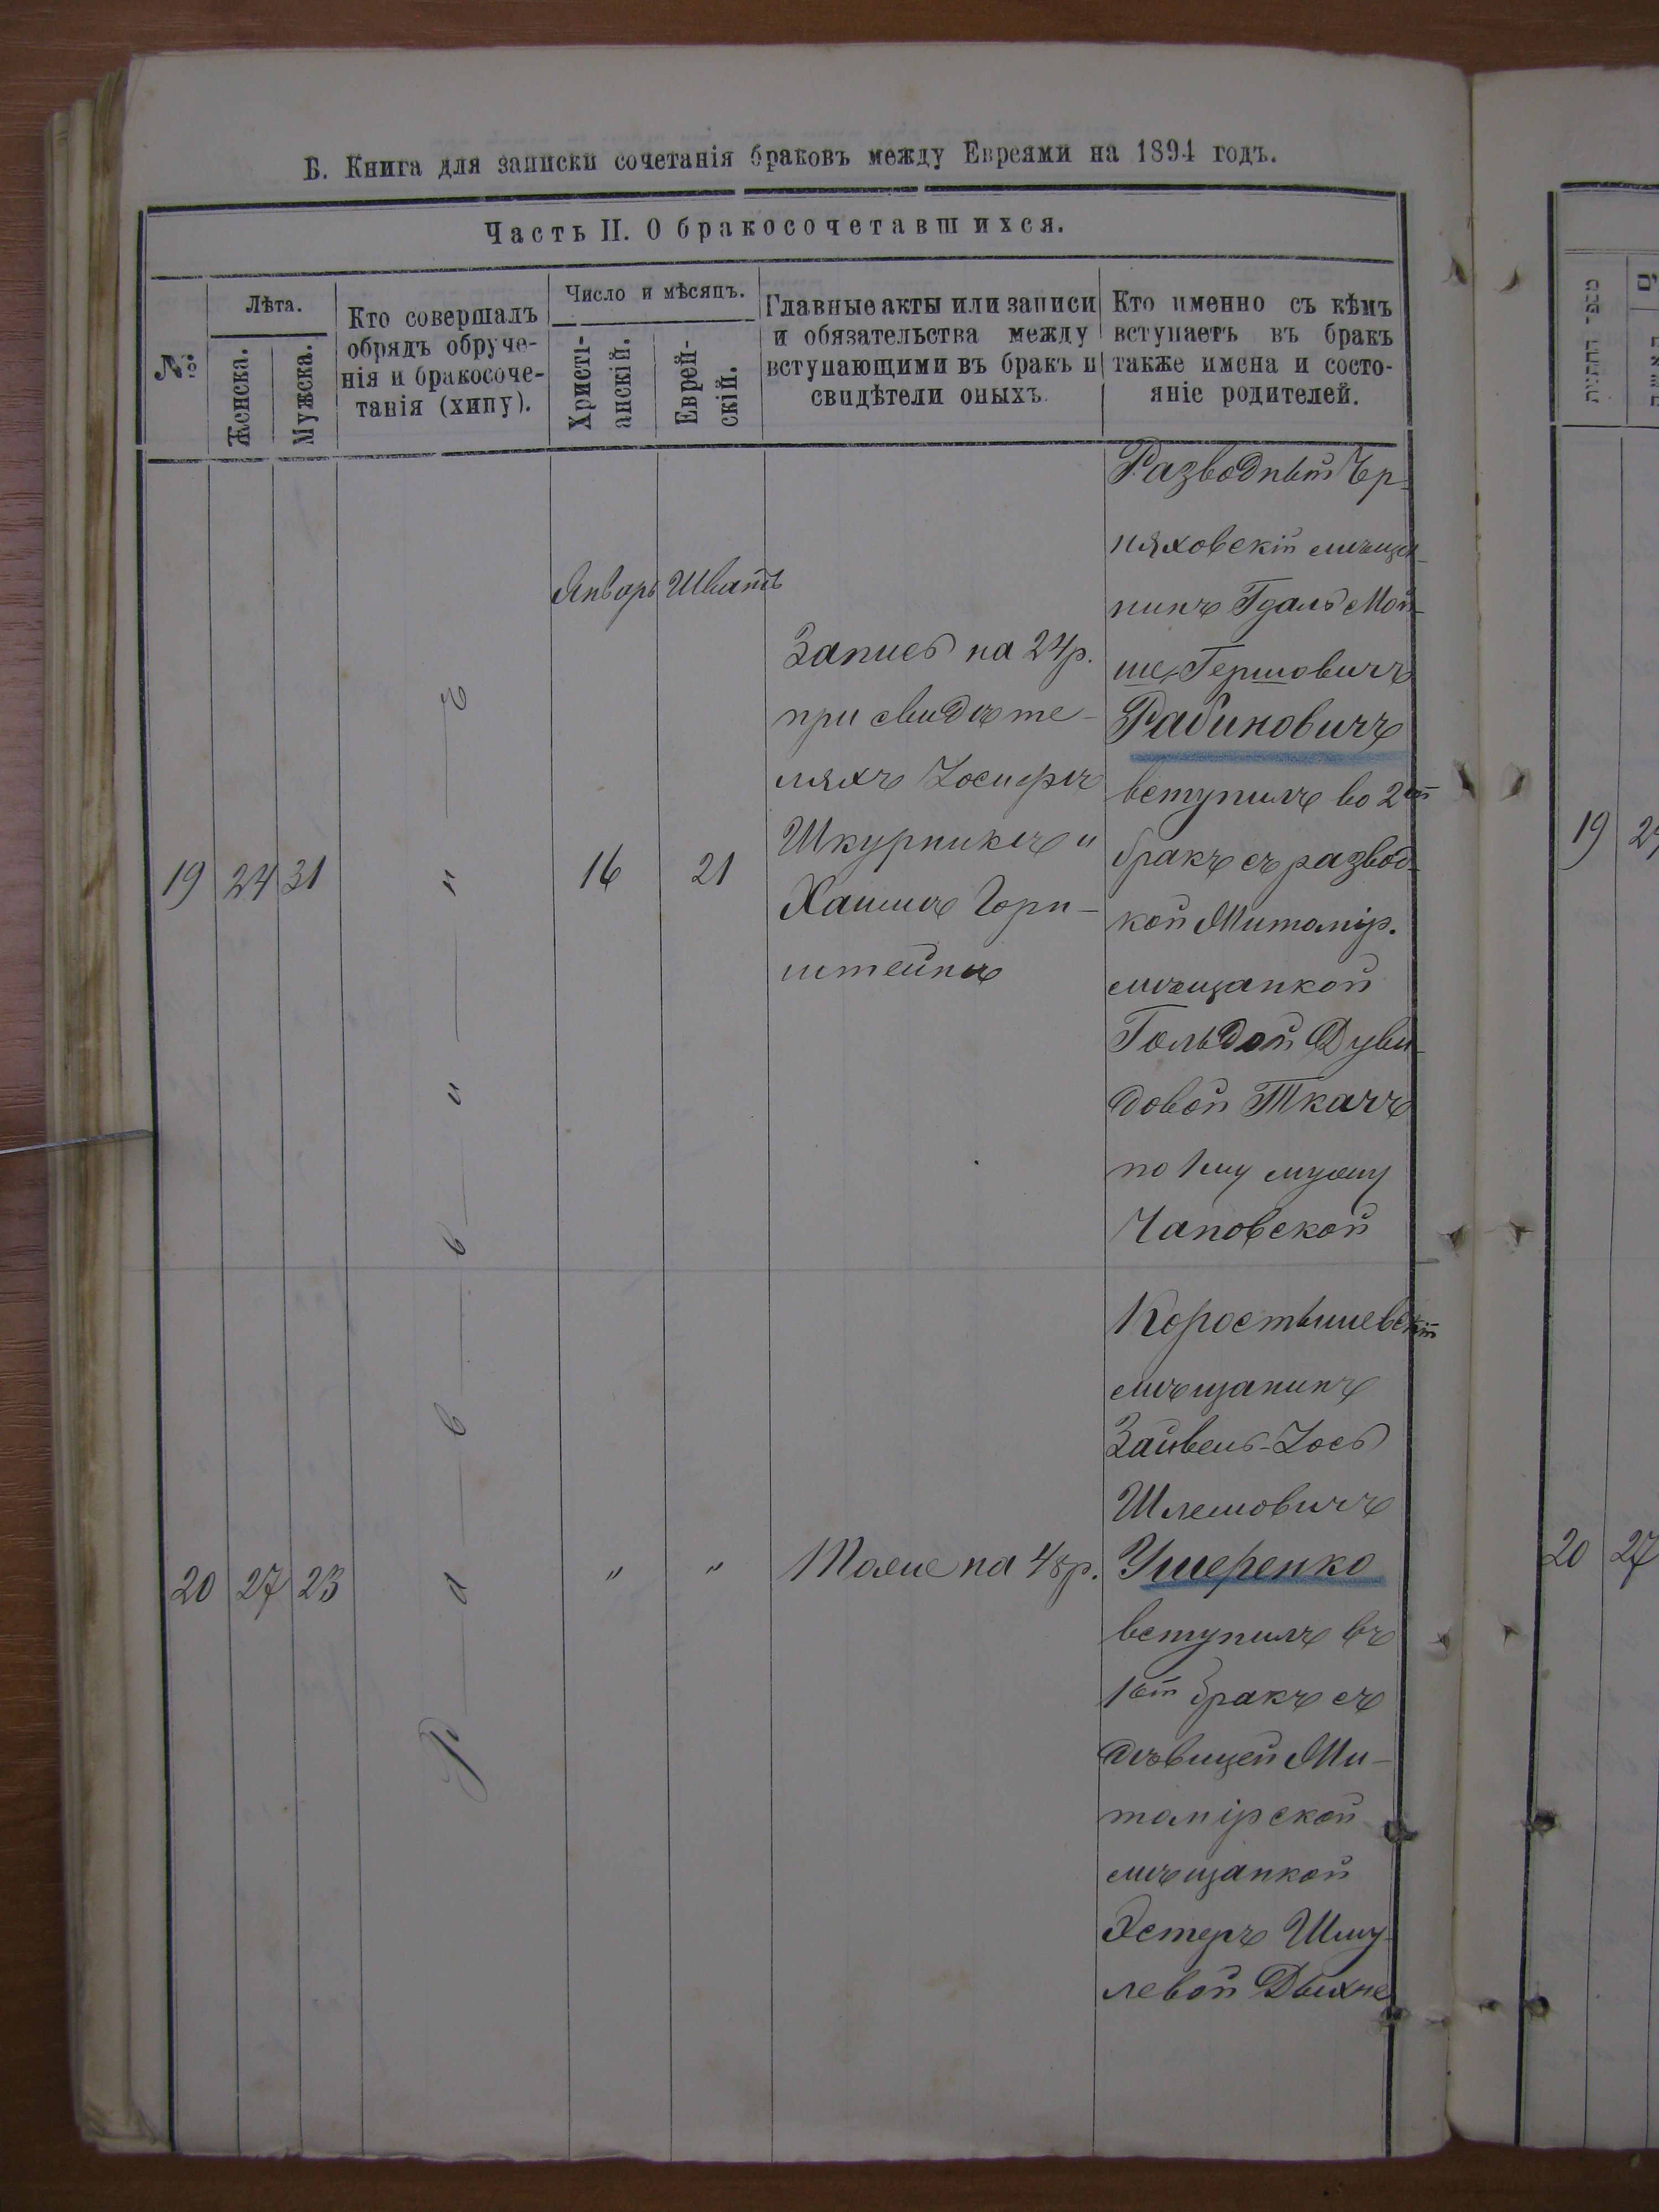 Б. Книга для записки сочетанія браковъ между Евреями на 1894 годъ.
Часть II. О бракосочетавшихся.
№
Лѣта.
Женска.
Мужска.
Кто совершалъ
обрядъ обруче-
нія и бракосоче-
танія (хипу).
Число и мѣсяцъ.
Христі-
анскій.
Еврей-
скій.
Главные акты или записи
и обязательства между
вступающими въ бракъ и
свидѣтели оныхъ
Кто именно съ кѣмъ
вступаетъ въ бракъ
также имена и состо-
яніе родителей.
19
24
31
Р—а—в—в—и—н—ъ
Январь
16
Шватъ
21
Запись на 24 р.
при свидѣте-
ляхъ Іосифѣ
Шкурникѣ и
Хаимѣ Горн-
штейнѣ
Разводный Чер-
няховскій мѣща-
нинъ Гдаль Мой-
ше-Гершовичъ
Рабиновичъ
вступилъ во 2ой
бракъ съ развод-
кой Житомір.
мѣщанкой
Гольдой Дуви-
довой Ткачъ
по 1му мужу
Чаповской
20
27
23
"
"
Тоже на 48 р.
Коростышевскій
мѣщанинъ
Зайвель-Іось
Шлемовичъ
Ушеренко
вступилъ въ
1ый бракъ съ
дѣвицей Жи-
томірской
мѣщанкой
Эстеръ Шму-
левой Дыхне
19
20
27